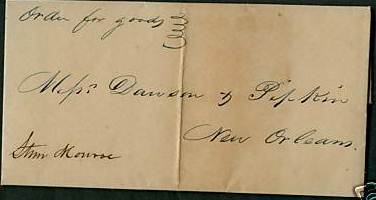 Order for goods
Messrs Dawson & Pipkin
New Orleans.
Stmr Monroe